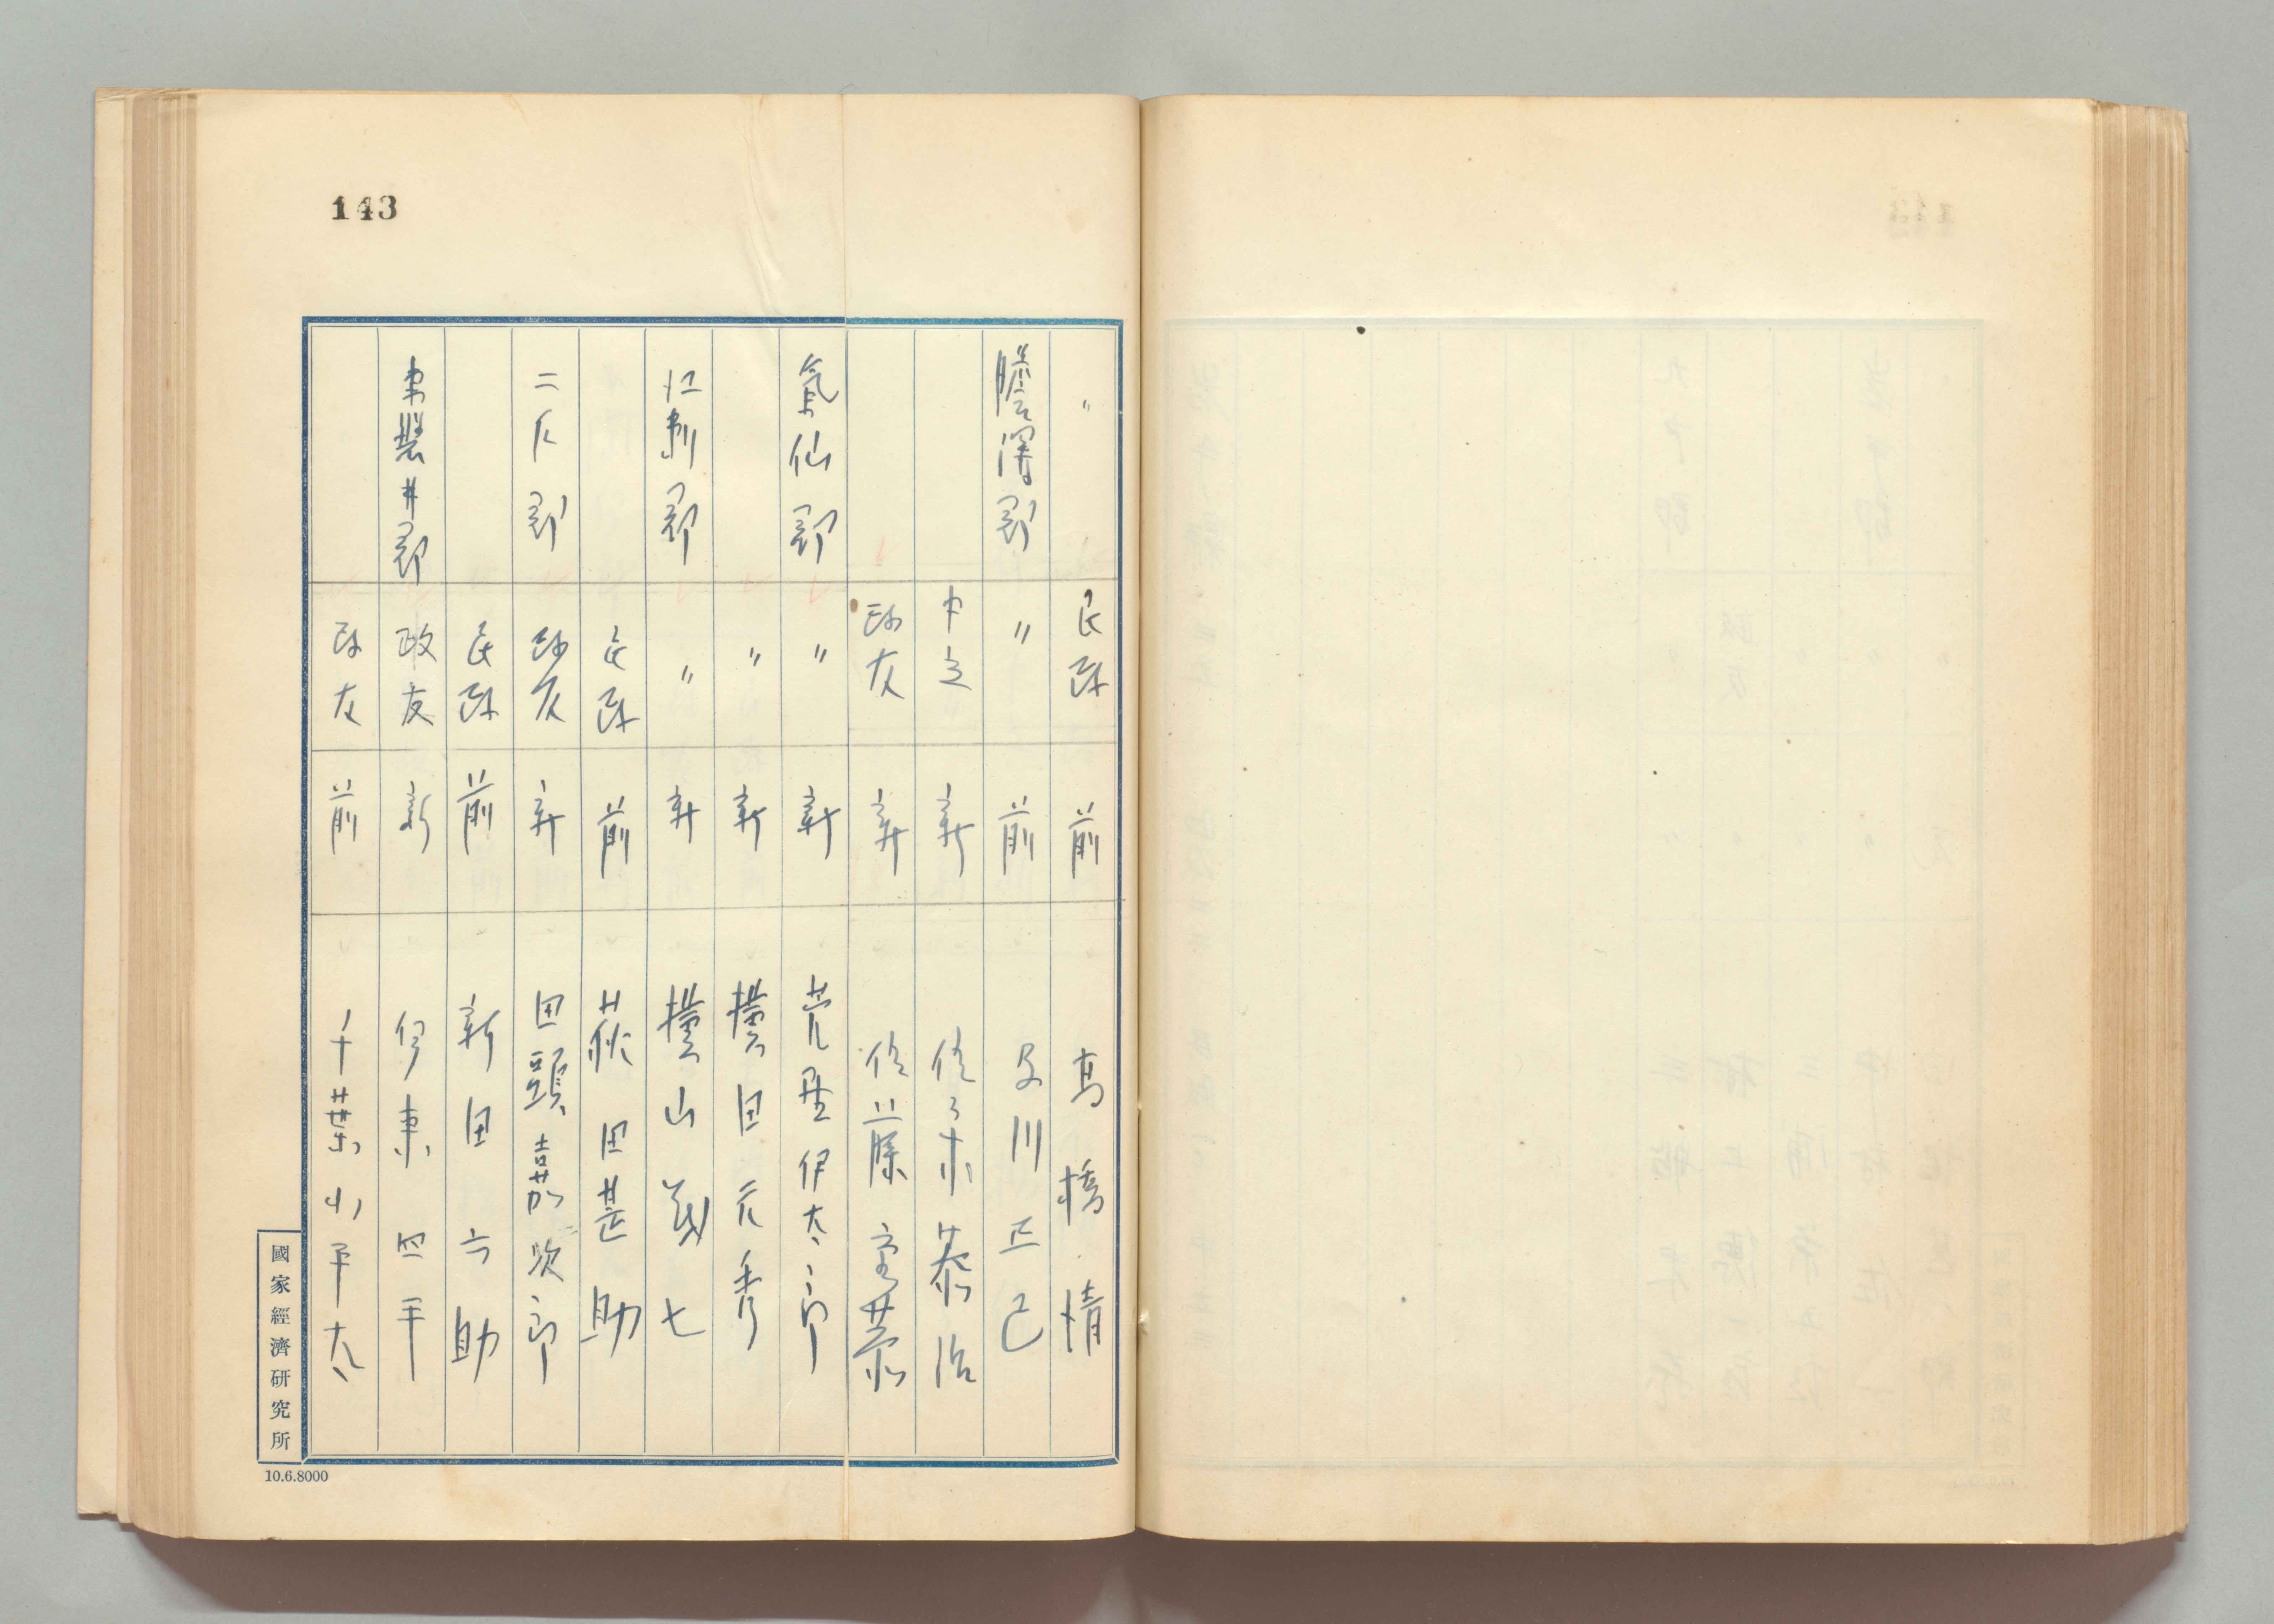 143
〃 民政 前 高橋 情
膽澤郡 〃 前 及川正己
中立 新 佐々木泰治
政友 新 佐藤
氣仙郡 〃 新 荒屋伊太郎
〃 新 横田元秀
江刺郡 〃 新 横山 七
民政 前 萩田甚助
二戸郡 政友 新 田頭嘉次郎
民政 前 新田六助
東磐井郡 政友 新 伊東四平
政友 前 千葉小平太
國家經濟研究所
10.6.8000